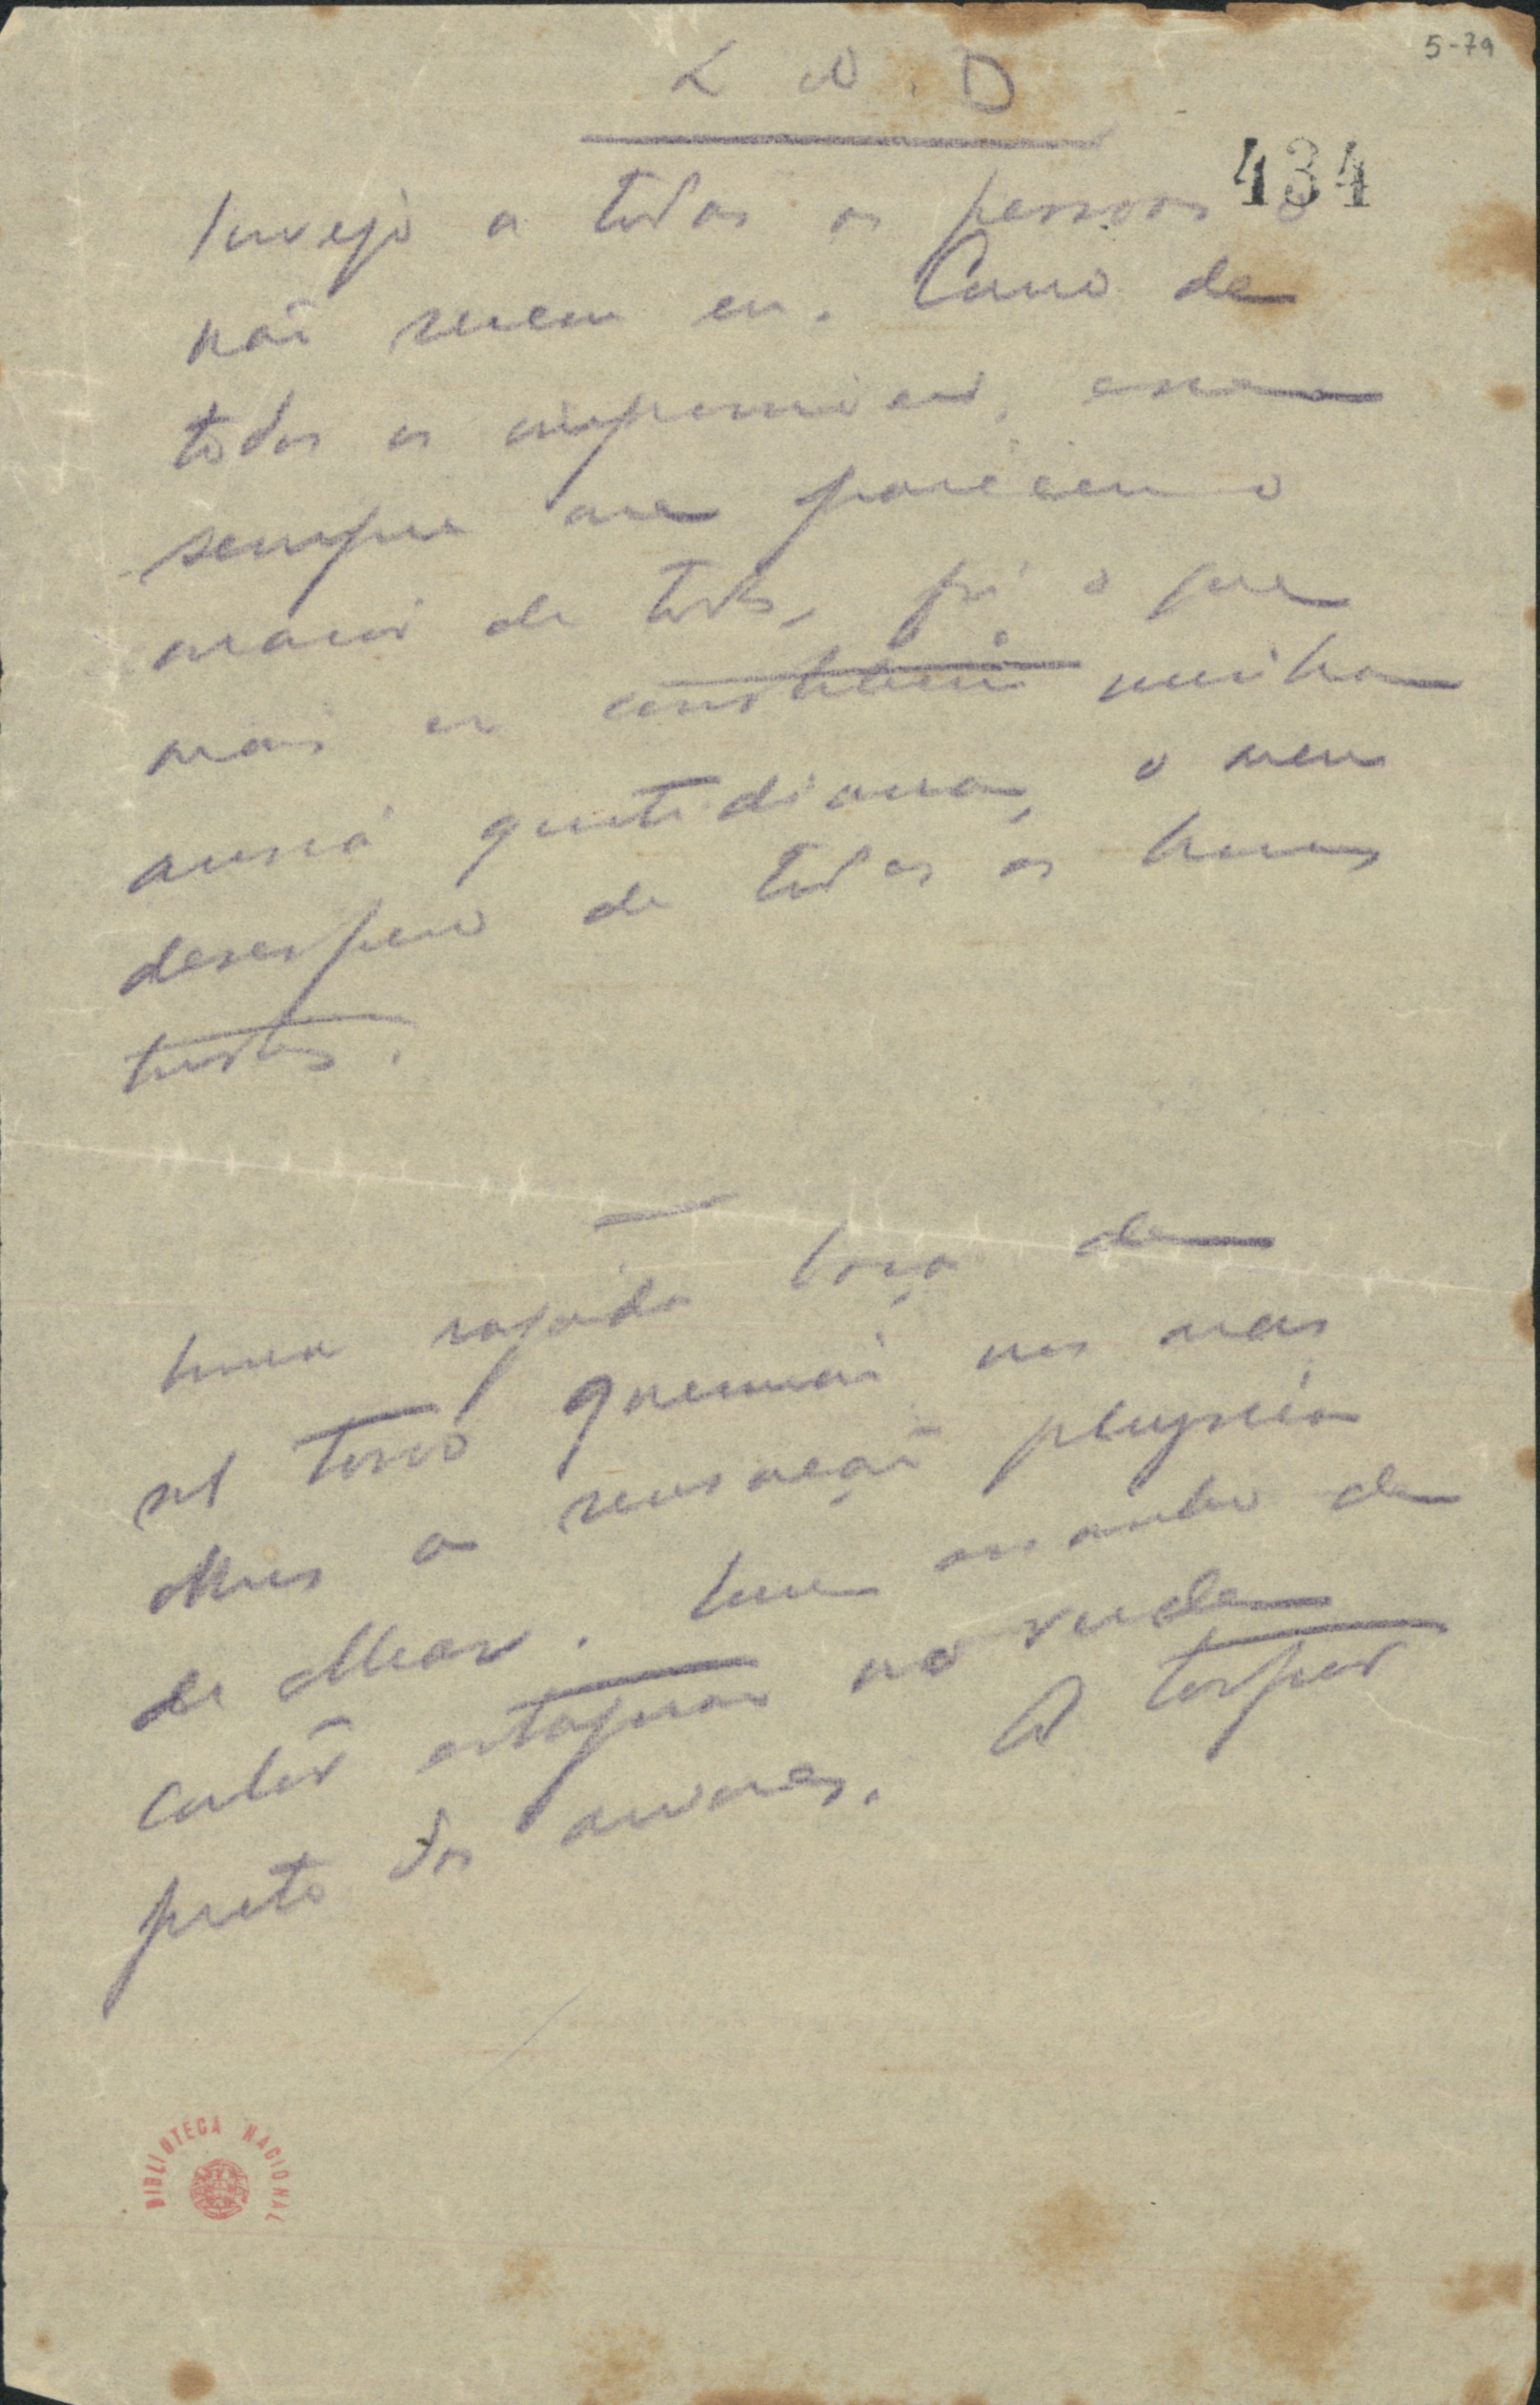 5-79
L. do D.
434
Invejo a todas as pessoas o
não serem eu. Como de
todos os impossiveis, esse
sempre me pareceu o
maior de todos, foi o que
mais se constituiu minha
ancia quotidiana, o meu
desespero de todas as horas
tristes.
Uma rajada baça de
sol turvo queimou nos meus
olhos a sensação physica
de olhar. Um amarello de
calor estagnou no verde
preto das arvores. O torpor
BIBLIOTECA NACIONAL